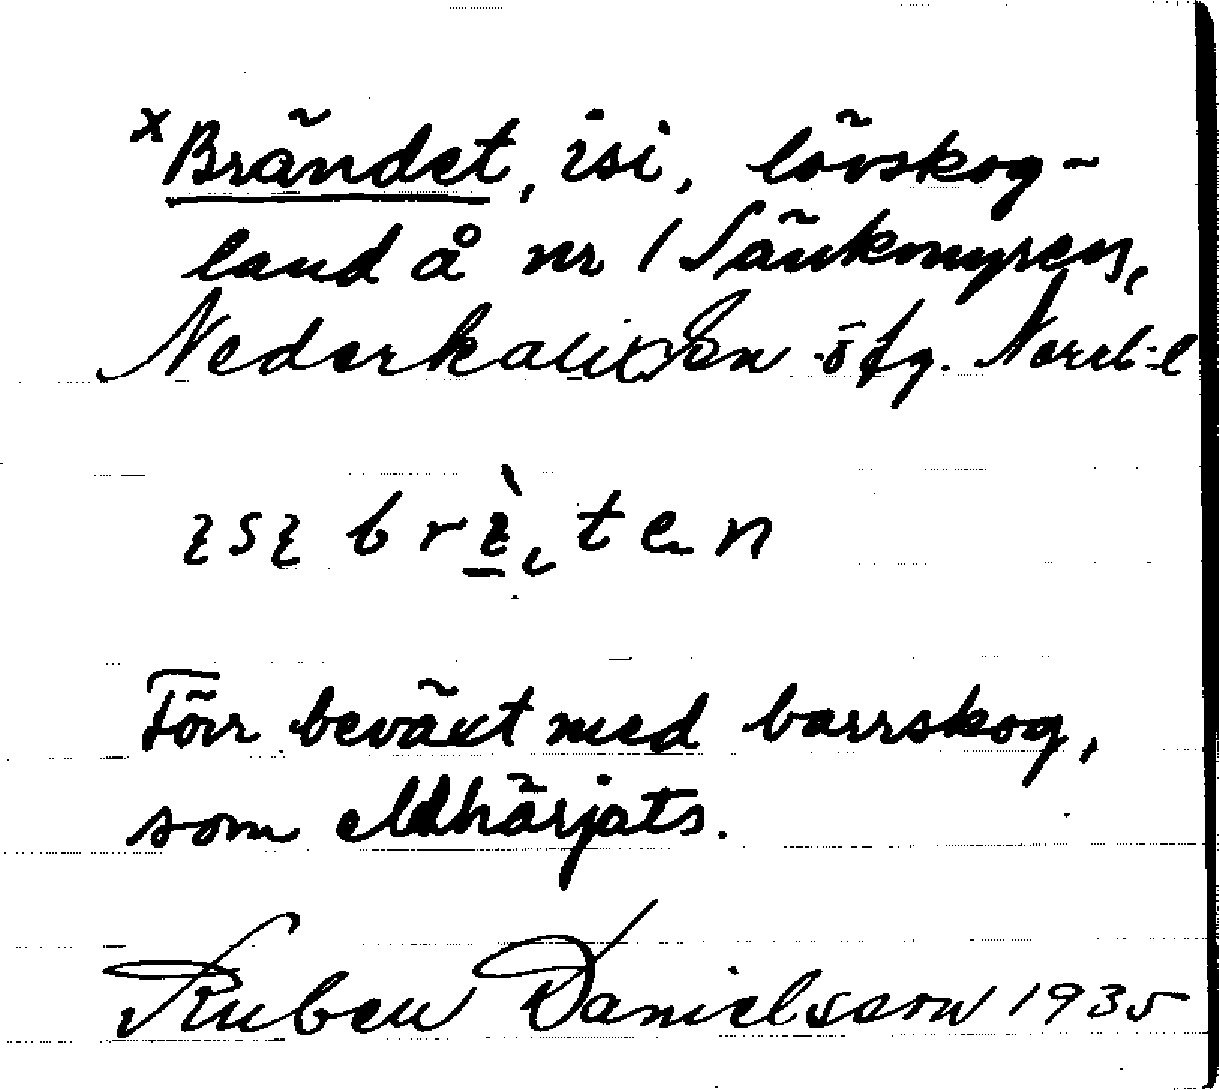 x Brändet, isi, lövskog-
land å nr 1 Sänkomyren,
Nederkalixen sfg. Norrb. l
Förr beväxt med barrskog,
som eldhärjats.
Ruben Danielsson 1935